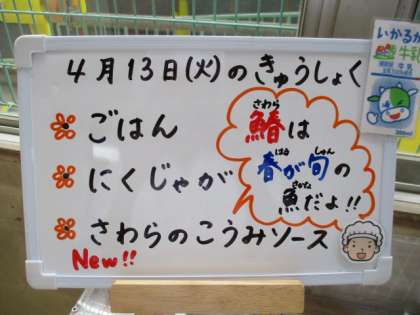 4月13日(火)のきゅうしょく
ごはん
にくじゃが
さわらのこうみソース
New!!
さわら
鰆は
はる しゅん
春が旬の
さかな
魚だよ!!
いかるが
牛乳